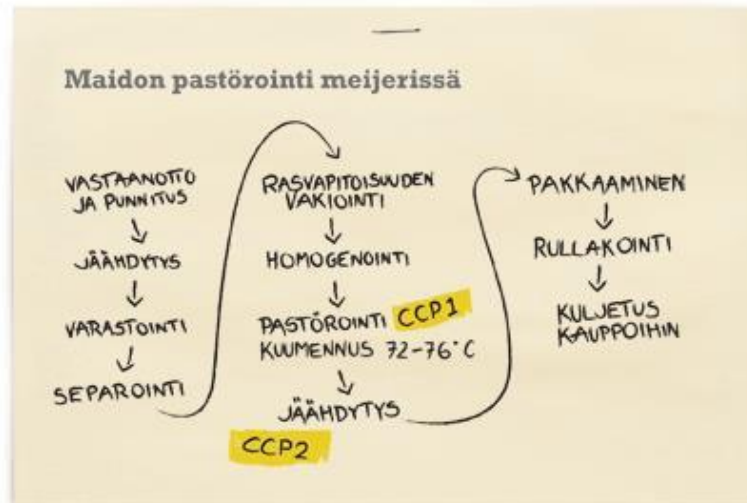 Maidon pastörointi meijerissä
VASTAANOTTO
JA PUNNITUS
JÄÄHDYTYS
VARASTOINTI
SEPAROINTI
RASVAPITOISUUDEN
VAKIOINTI
HOMOGENOINTI
PASTÖROINTI CCP1
KUUMENNUS 72-76°C
JÄÄHDYTYS
CCP2
PAKKAAMINEN
RULLAKOINTI
KULJETUS
KAUPPOIHIN